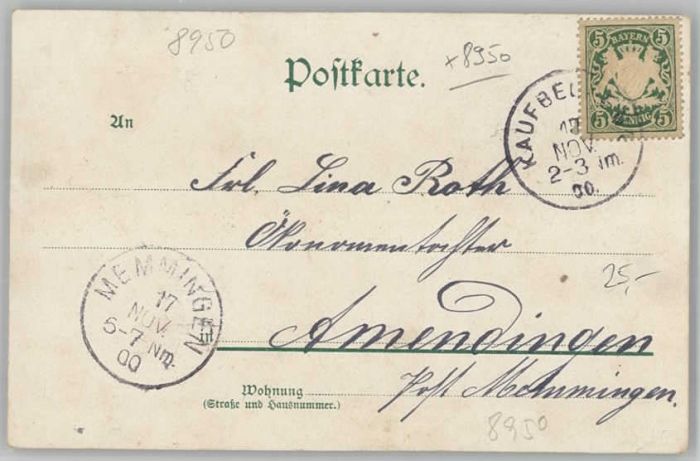 8950
+8950
Postkarte.
5 BAYERN 5
5 PFENNIG 5
KAUFBEU
17
NOV.
2-3 Nm.
00.
An
Frl. Lina Roth
Ökonomentochter
25,-
MEMMINGEN
17
NOV.
6-7 Nm.
00
Amendingen
Post Memmingen.
Wohnung
(Straße und Hausnummer.)
8950